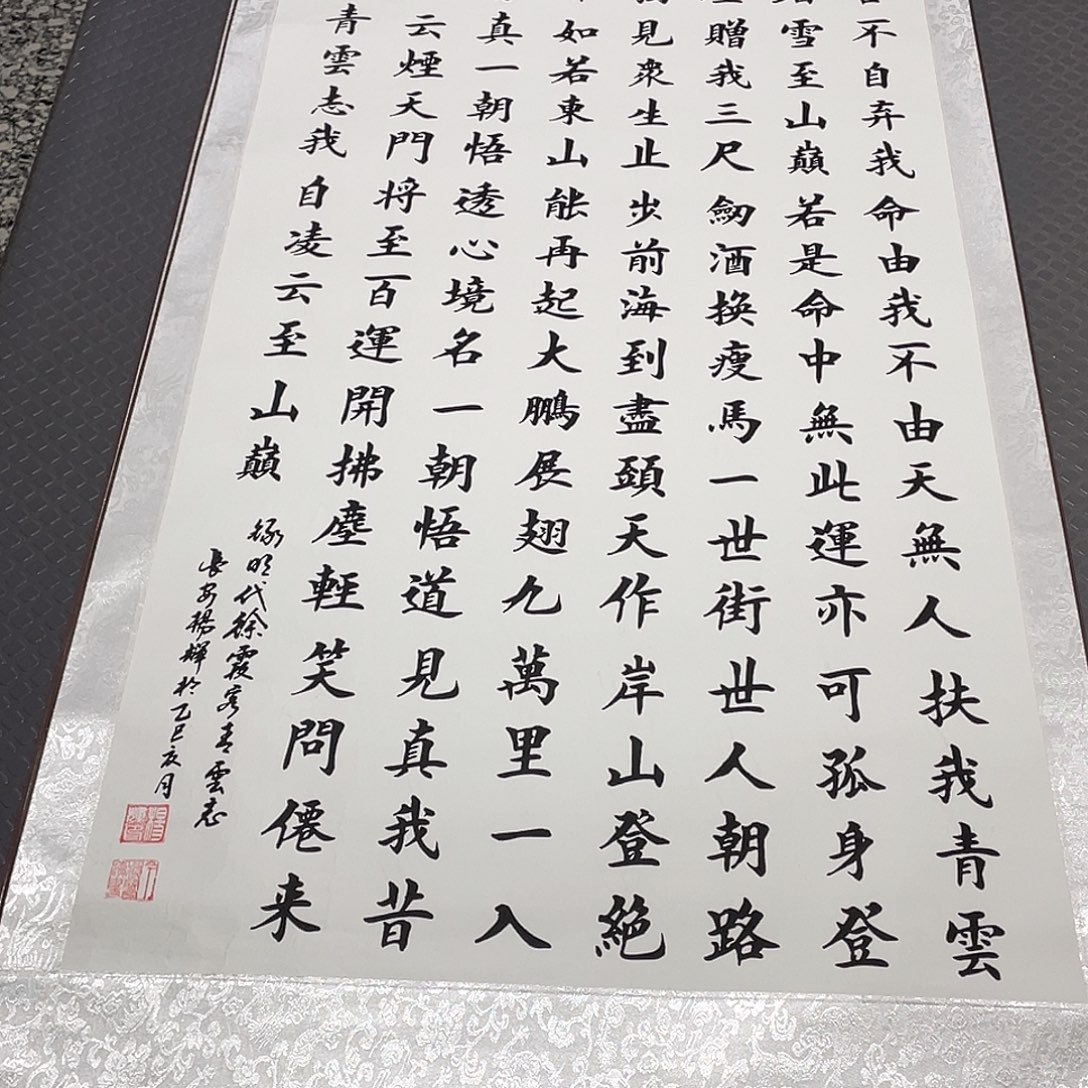 不自弃我命由我不由天無人扶我青雲
雪至山巔若是命中無此運亦可孤身登
贈我三尺劒酒換瘦馬一世街世人朝路
見衆生止步前海到盡頭天作岸山登絕
如若東山能再起大鵬展翅九萬里一入
真一朝悟透心境名一朝悟道見真我昔
云煙天門将至百運開拂塵輕笑問僊来
青雲志我自凌云至山巔
錄明代徐霞客青雲志
長安楊輝於乙巳亥月